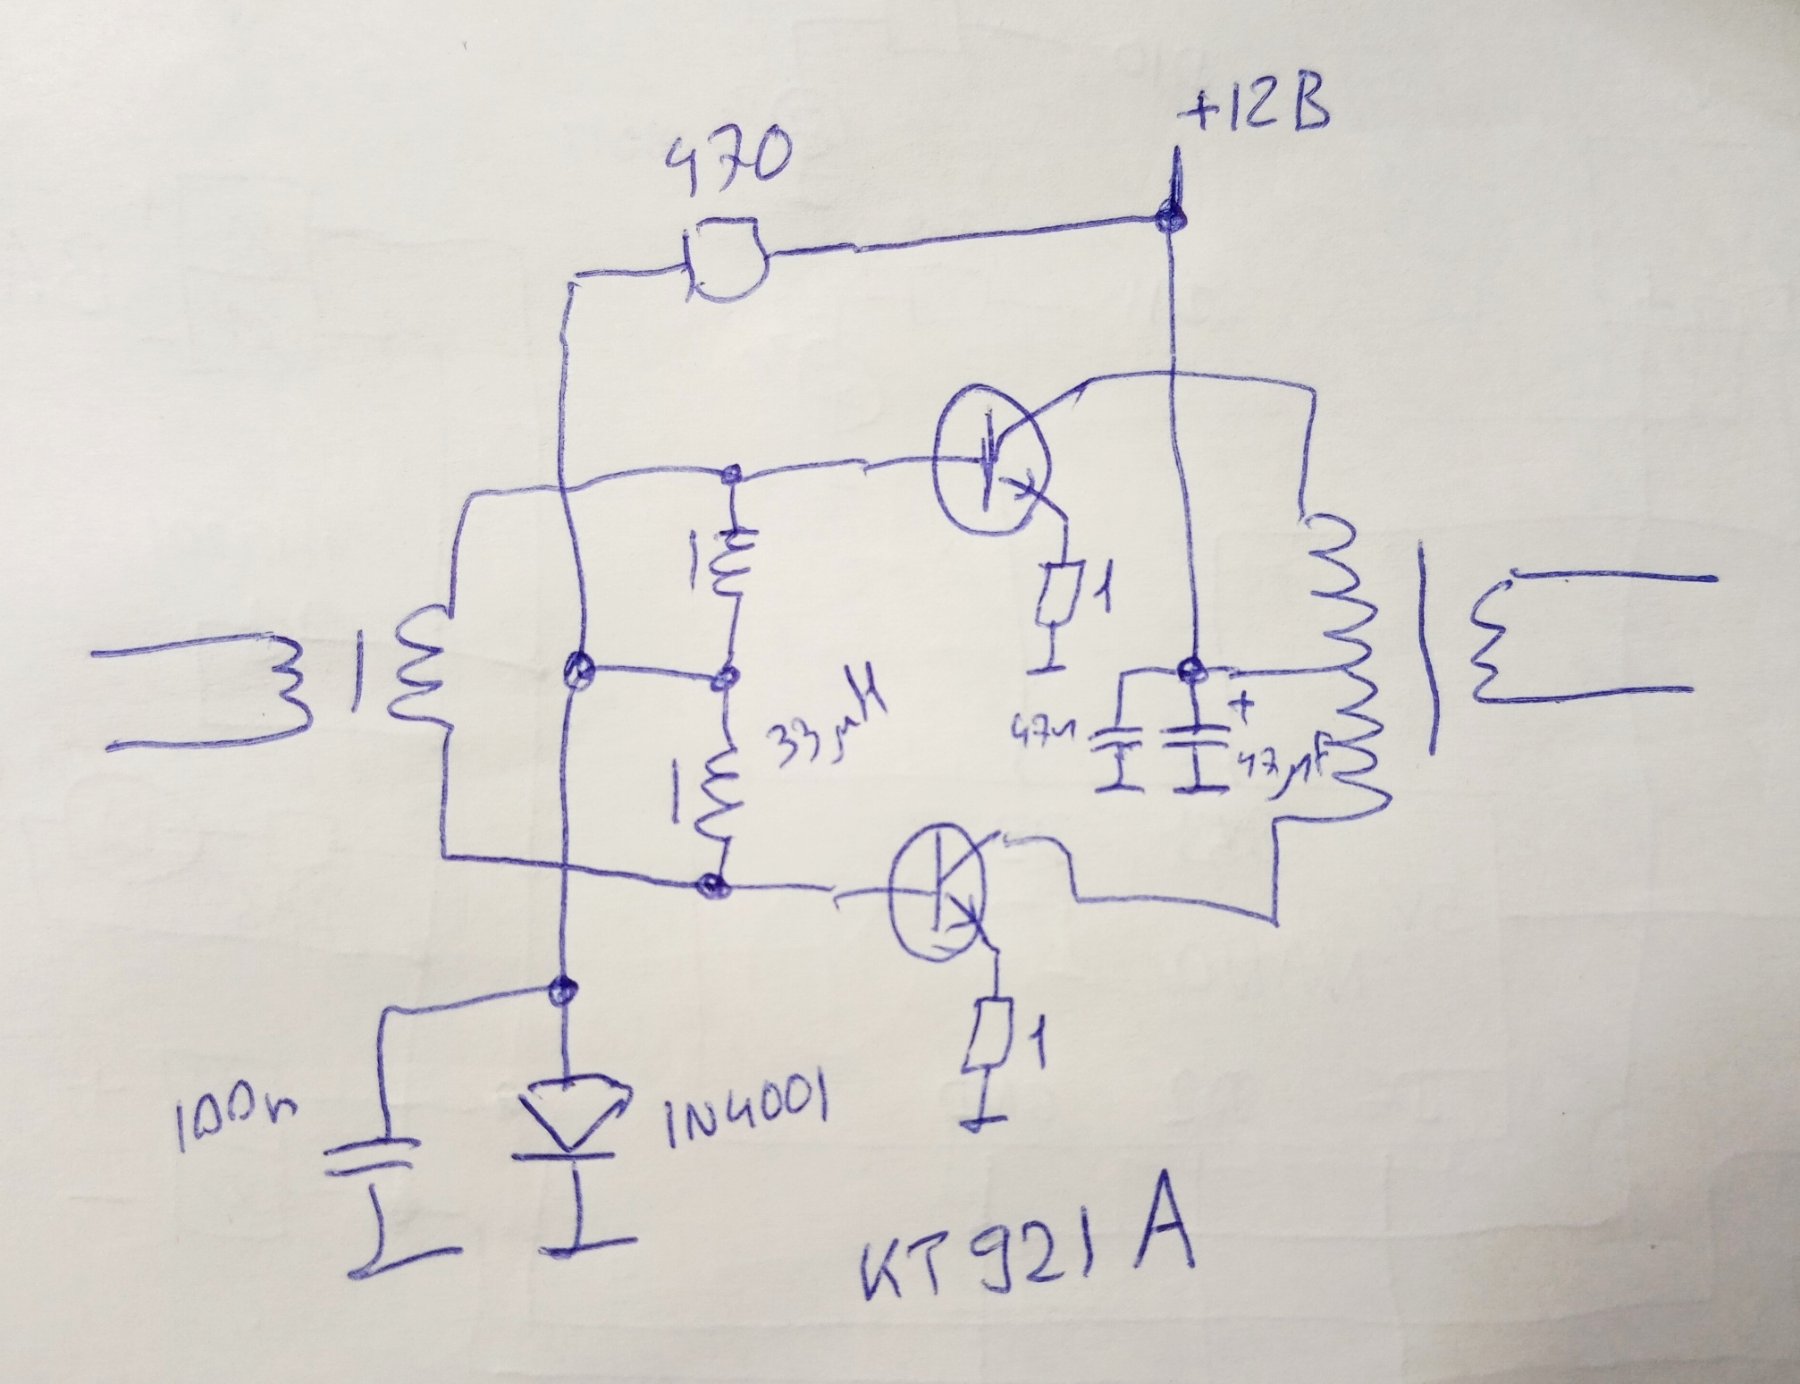 +12В
470
1
33μH
47n
+
47μF
100n
1N4001
1
КТ921А